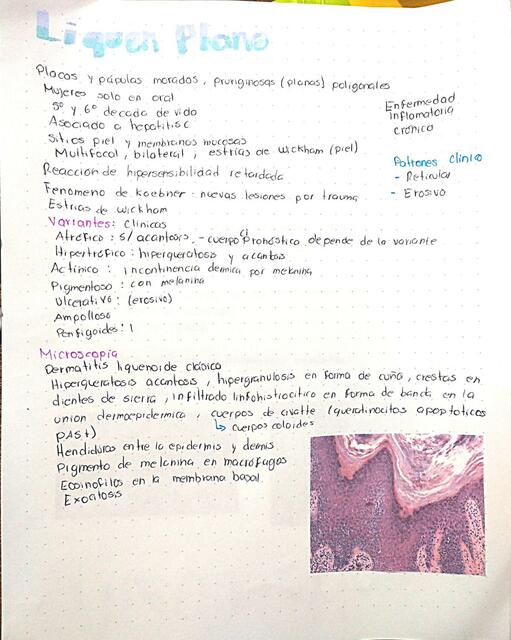 Liquen Plano
Placas y pápulas moradas, pruriginosas (planas) poligonales
Mujeres solo en oral
5º y 6º decada de vida
Asociado a hepatitis c
Sitios piel y membranas mucosas
Multifocal, bilateral, estrías de wickham (piel)
Enfermedad
inflamatoria
crónica
Reacción de hipersensibilidad retardada
Fenomeno de koebner: nuevas lesiones por trauma
Estrias de wickham
Patrones clínico
- Reticular
- Erosivo
Variantes: clínicas
Atrófico: s/ acantosis, - cuerpo pronóstico depende de la variante
Hipertrófico: hiperqueratosis y acantosis
Actínico: incontinencia dermica por melanina
Pigmentoso: con melanina
Ulcerativo: (erosivo)
Ampolloso
Penfigoides:
Microscopía
Dermatitis liquenoide clásica
Hiperqueratosis acantosis, hipergranulosis en forma de cuña, crestas en
dientes de sierra, infiltrado linfohistiocitico en forma de banda en la
union dermoepidermica, cuerpos de civatte (queratinocitos apoptoticos
PAS+)
↳ cuerpos coloides
Hendiduras entre la epidermis y dermis
Pigmento de melanina en macrofagos
Eosinofilos en la membrana basal
Exocitosis